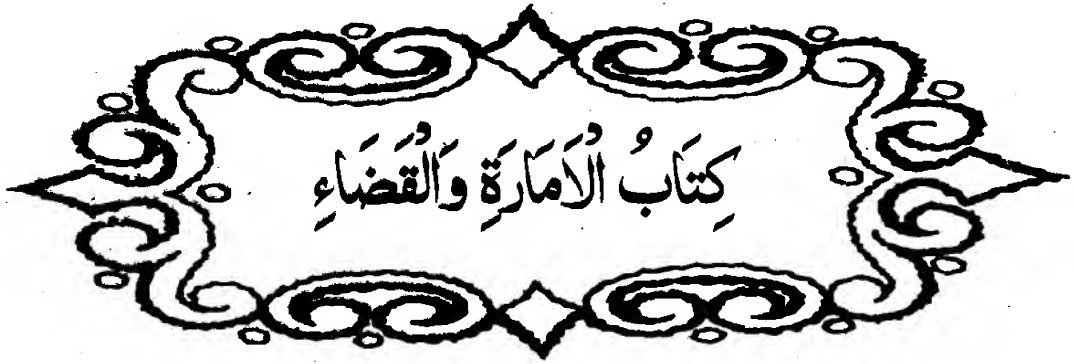 كِتَابُ الْاَمَارَةِ وَالْقَضَاءِ